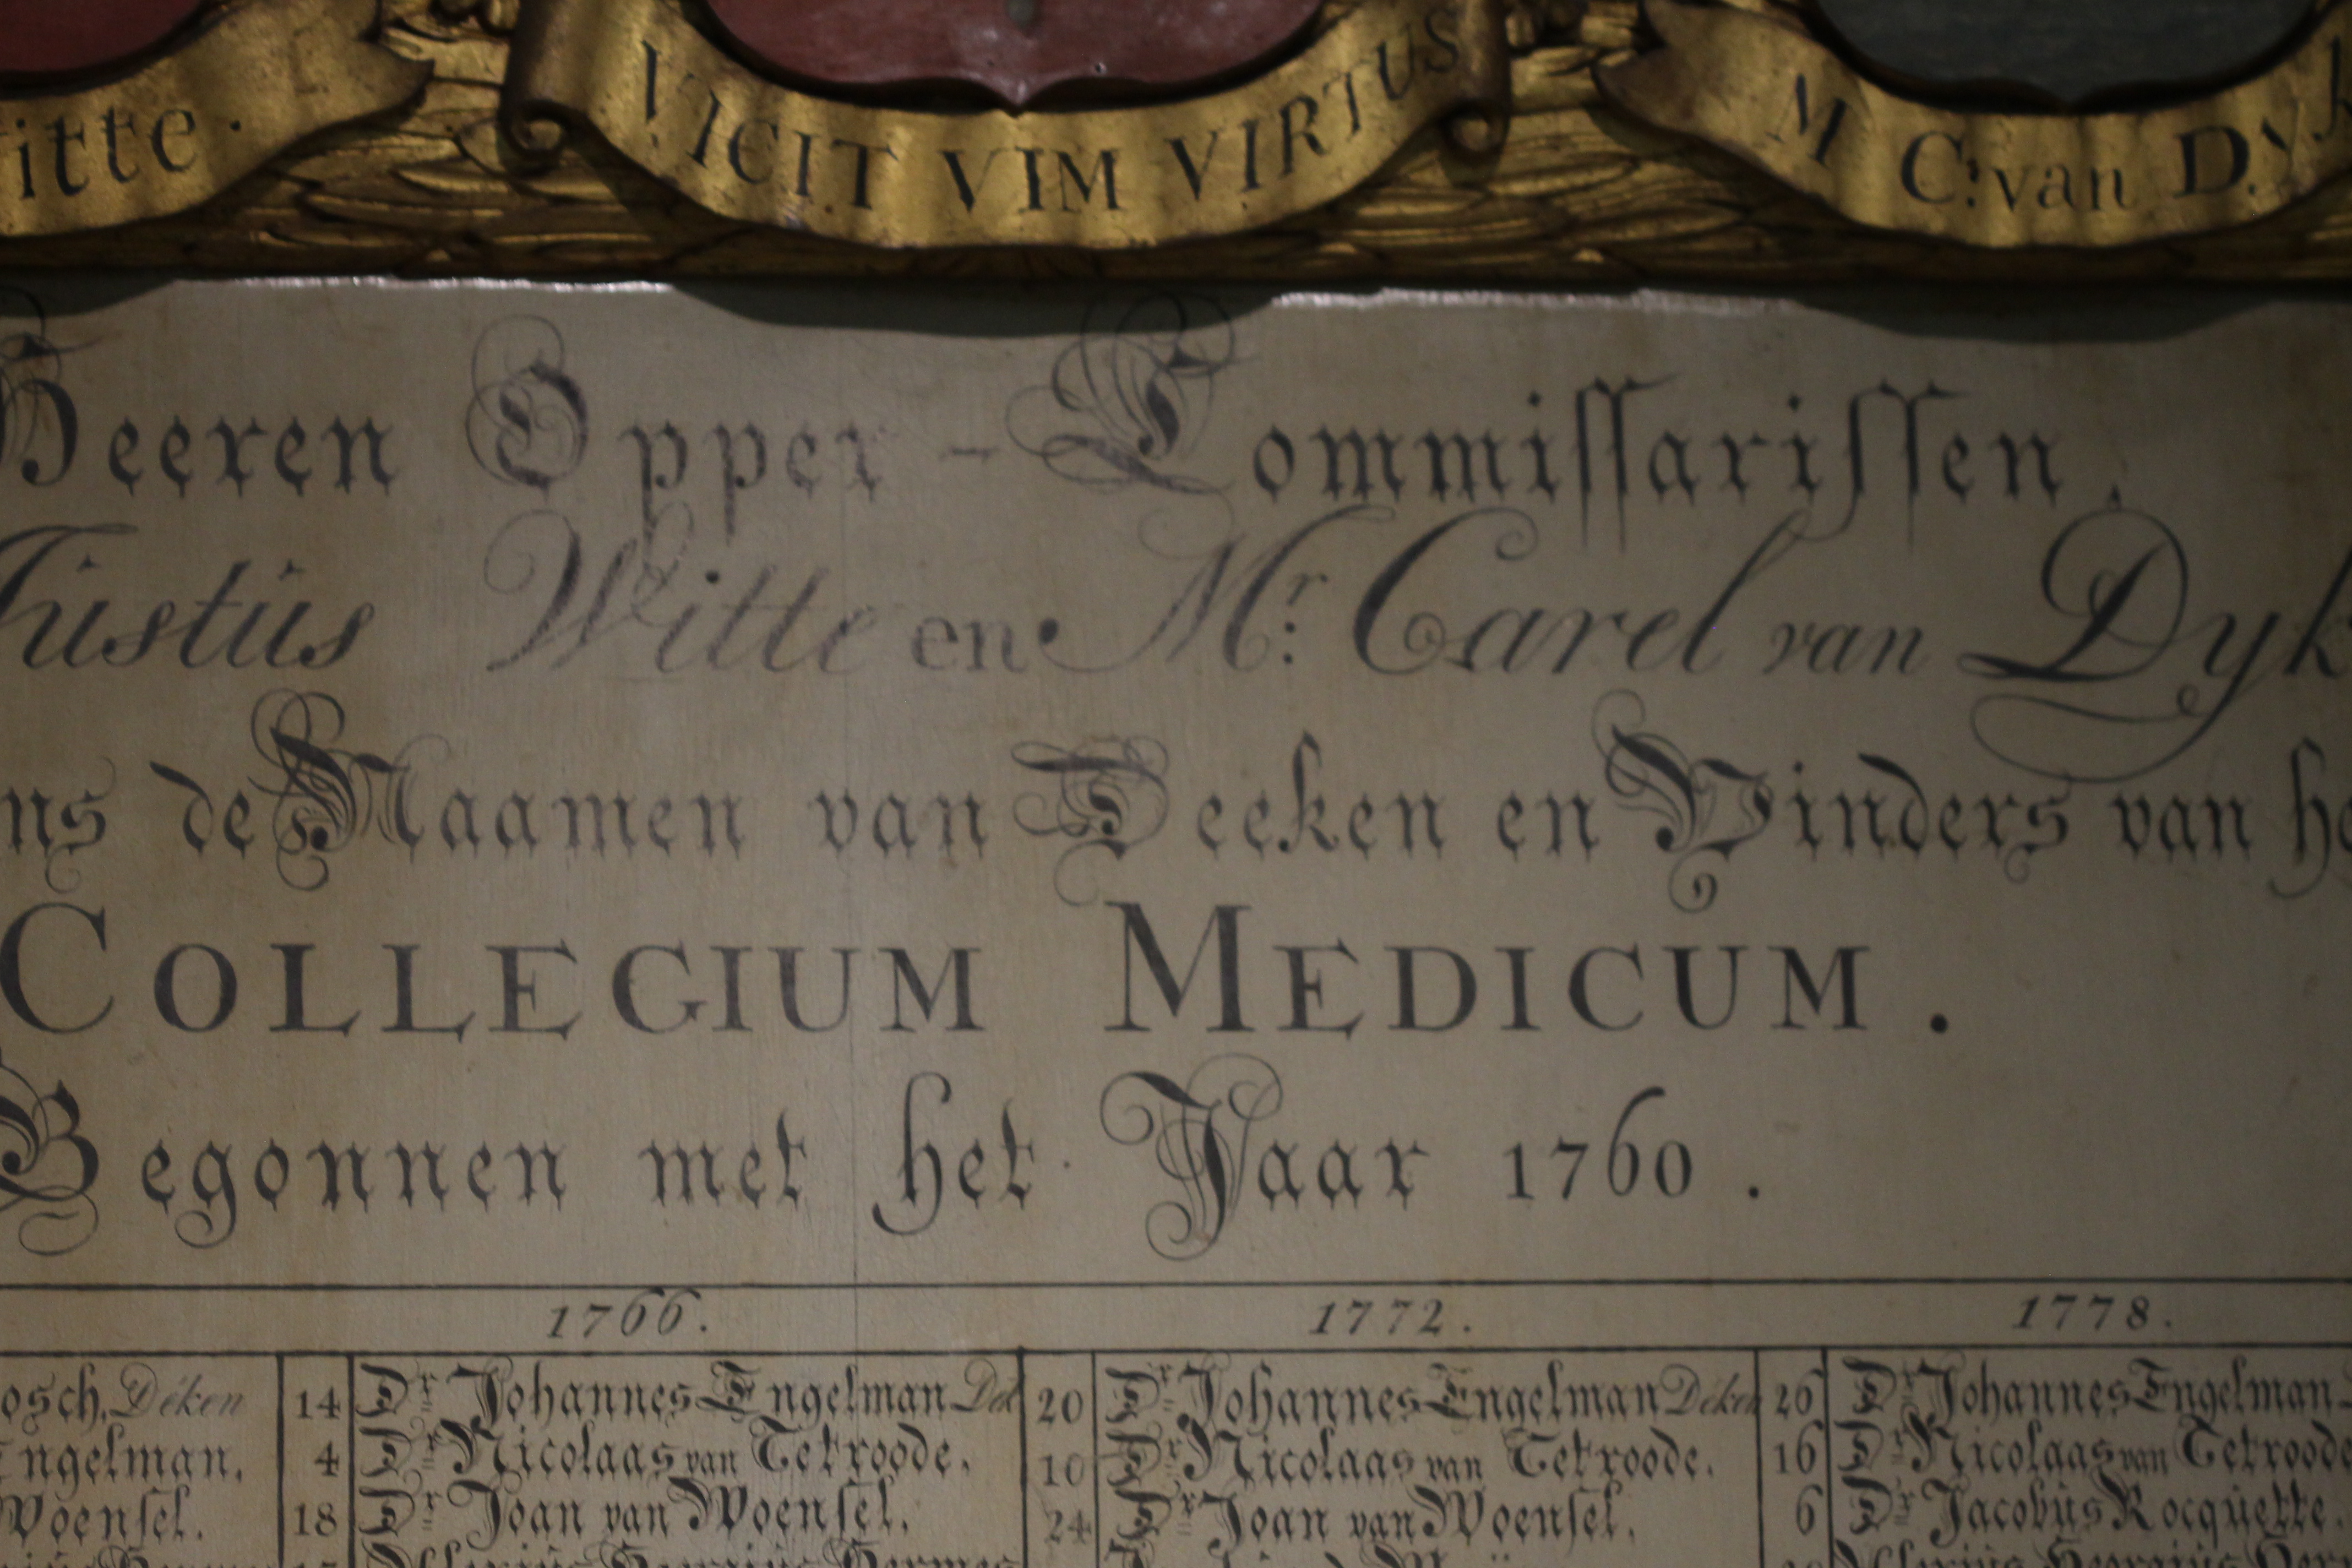 itte.
VICIT VIM VIRTUS
M C: van Dyk
Heeren Opper-Commiſſariſſen,
Justüs Witte en Mr: Carel van Dyk
ns de Naamen van Deeken en Vinders van he
COLLEGIUM MEDICUM.
Begonnen met het Jaar 1760.
1766. 1772. 1778.
osch, Déken 14 Dr. Johannes Engelman Dék 20 Dr. Johannes Engelman Déken 26 Dr. Johannes Engelman
Engelman. 4 Dr. Nicolaas van Tetroode. 10 Dr. Nicolaas van Tetroode. 16 Dr. Nicolaas van Tetroode
Woenſel. 18 Dr. Joan van Woenſel. 24 Dr. Joan van Woenſel. 6 Dr. Jacobüs Rocquette.